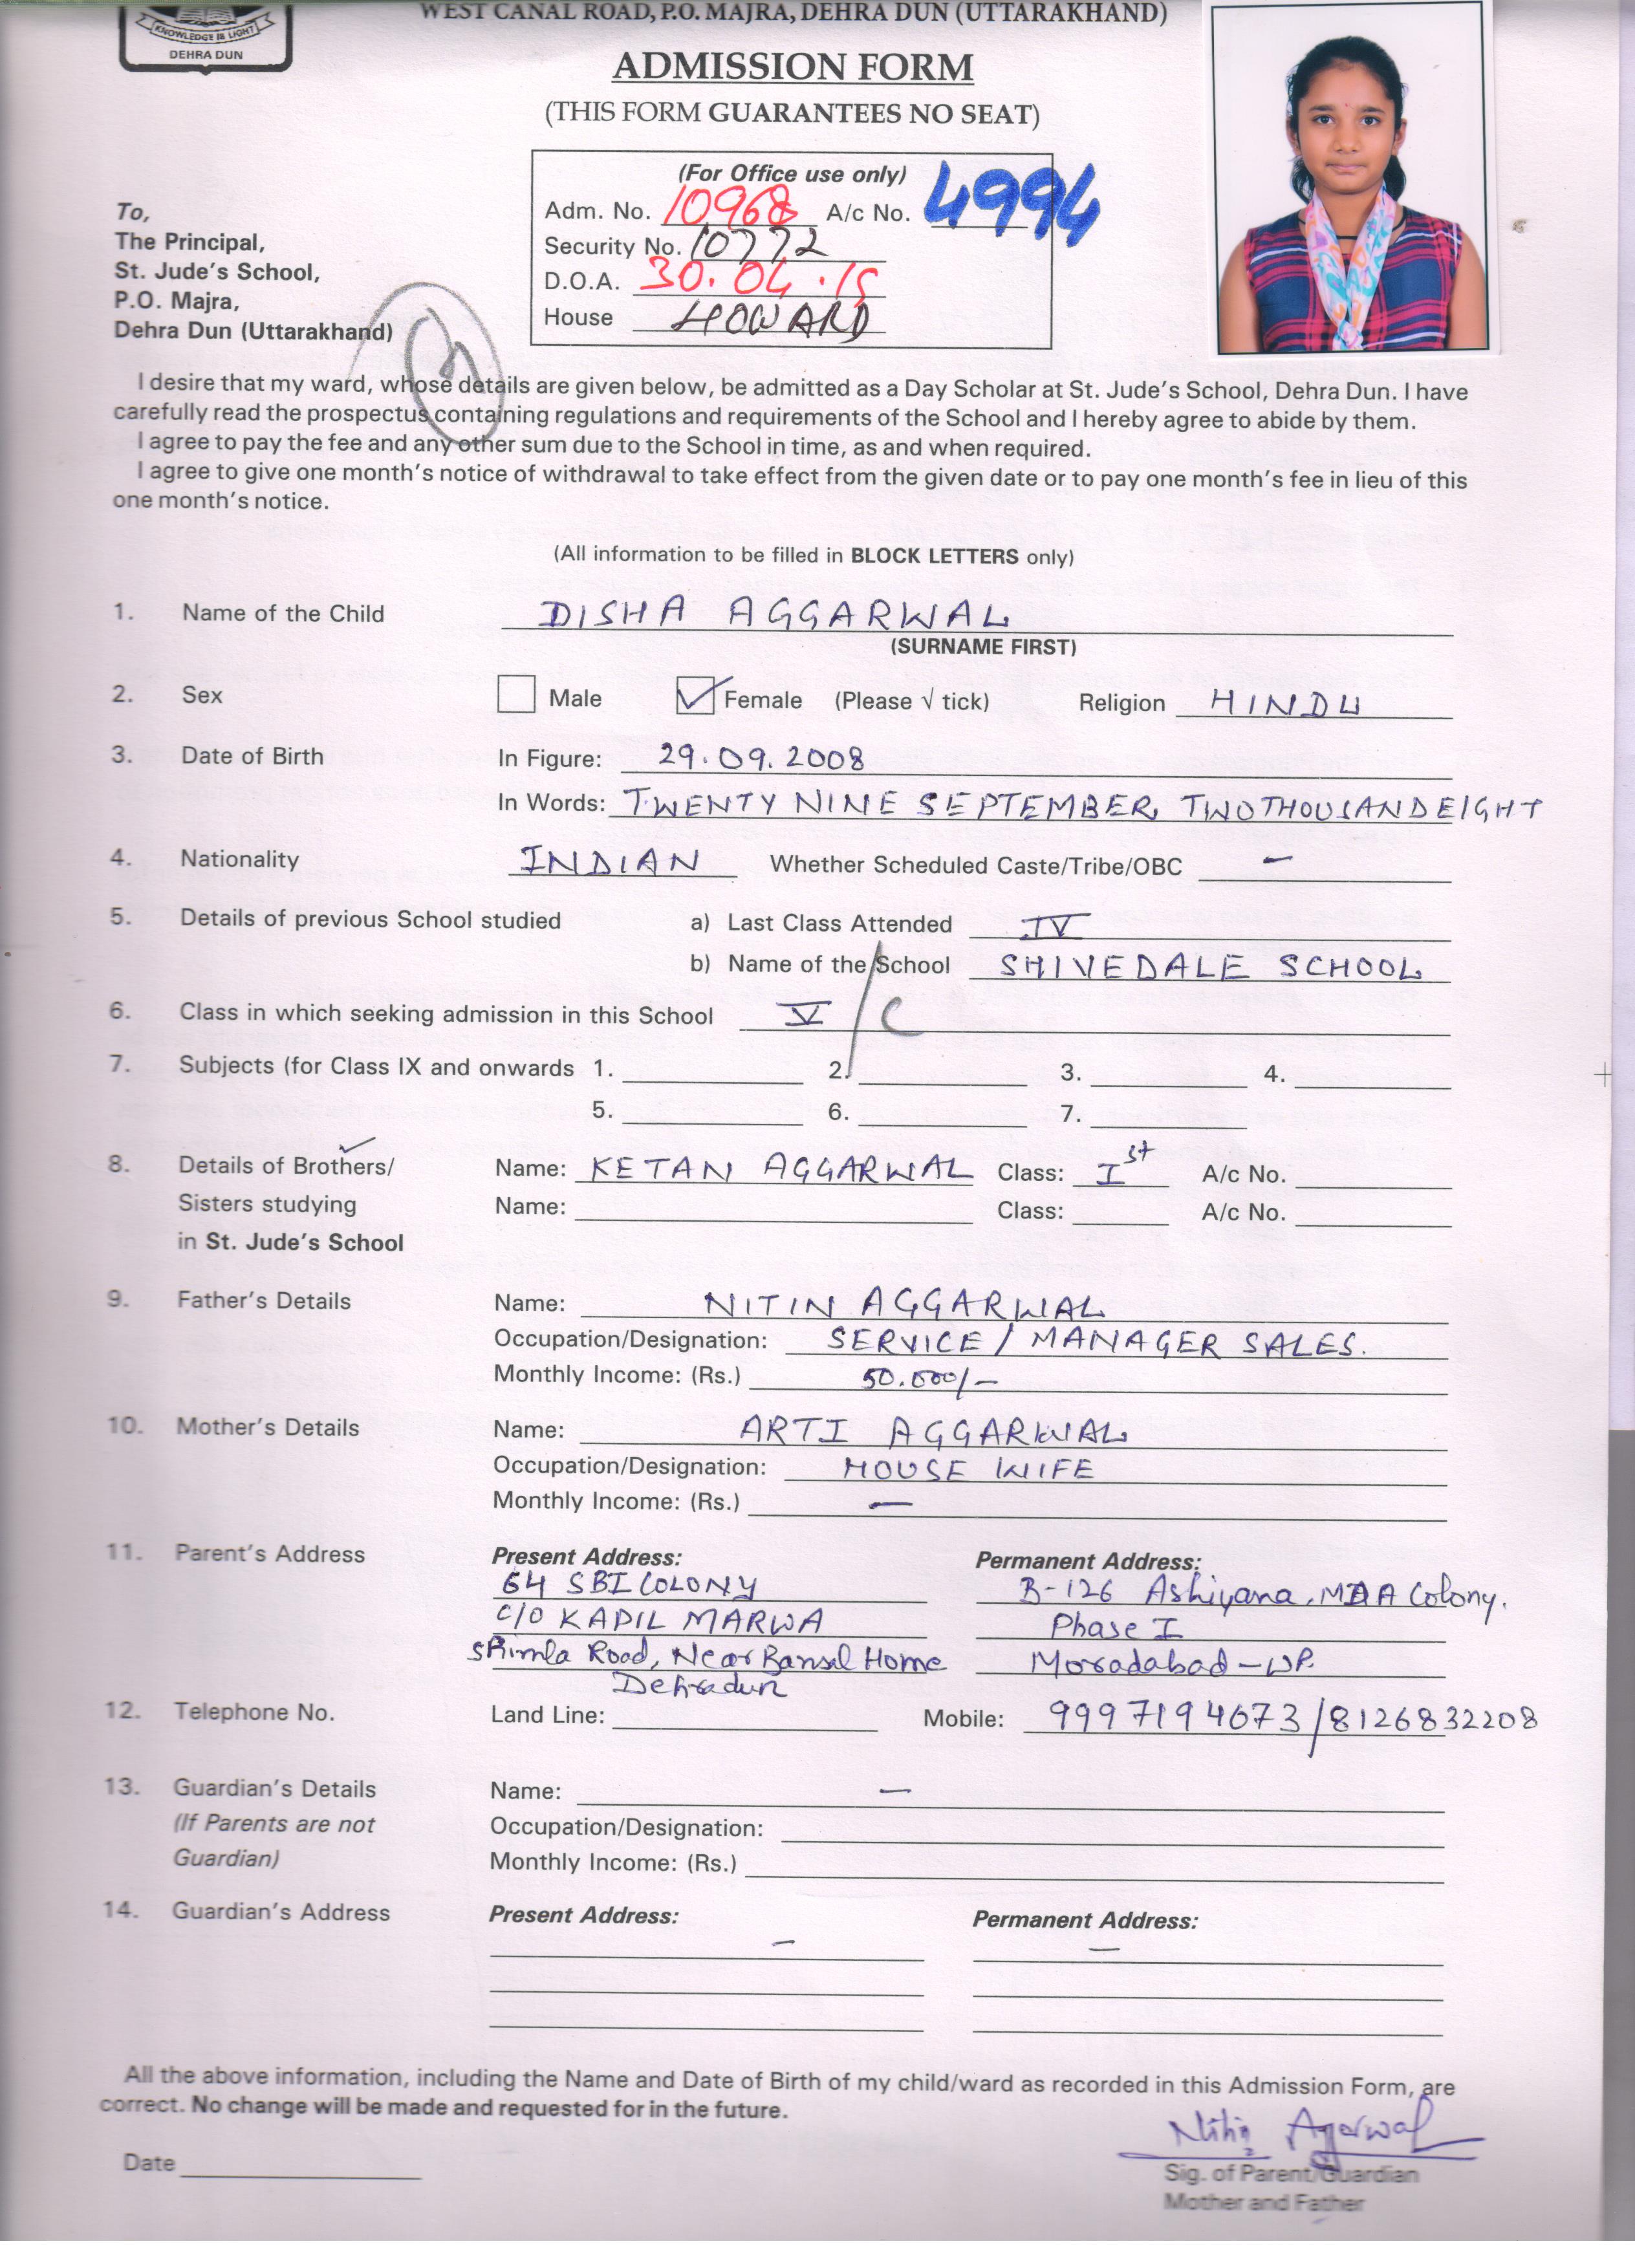 WEST CANAL ROAD, P.O. MAJRA, DEHRA DUN (UTTARAKHAND)
KNOWLEDGE IS LIGHT
DEHRA DUN
ADMISSION FORM
(THIS FORM GUARANTEES NO SEAT)
(For Office use only)
Adm. No. 10968 A/c No. 4994
Security No. 10772
D.O.A. 30.04.15
House HOWARD
To,
The Principal,
St. Jude's School,
P.O. Majra,
Dehra Dun (Uttarakhand)
I desire that my ward, whose details are given below, be admitted as a Day Scholar at St. Jude's School, Dehra Dun. I have
carefully read the prospectus containing regulations and requirements of the School and I hereby agree to abide by them.
I agree to pay the fee and any other sum due to the School in time, as and when required.
I agree to give one month's notice of withdrawal to take effect from the given date or to pay one month's fee in lieu of this
one month's notice.
(All information to be filled in BLOCK LETTERS only)
1. Name of the Child DISHA AGGARWAL
(SURNAME FIRST)
2. Sex Male Female (Please √ tick) Religion HINDU
3. Date of Birth In Figure: 29.09.2008
In Words: TWENTY NINE SEPTEMBER TWO THOUSAND EIGHT
4. Nationality INDIAN Whether Scheduled Caste/Tribe/OBC –
5. Details of previous School studied a) Last Class Attended IV
b) Name of the School SHIVEDALE SCHOOL
6. Class in which seeking admission in this School V / C
7. Subjects (for Class IX and onwards 1. 2. 3. 4.
5. 6. 7.
8. Details of Brothers/ Name: KETAN AGGARWAL Class: Ist A/c No.
Sisters studying Name: Class: A/c No.
in St. Jude's School
9. Father's Details Name: NITIN AGGARWAL
Occupation/Designation: SERVICE / MANAGER SALES.
Monthly Income: (Rs.) 50.000/-
10. Mother's Details Name: ARTI AGGARWAL
Occupation/Designation: HOUSE WIFE
Monthly Income: (Rs.) –
11. Parent's Address Present Address: Permanent Address:
64 SBI COLONY B-126 Ashiyana, MDA Colony.
C/O KAPIL MARWA Phase I
Shimla Road, Near Bansal Home Moradabad - UP.
Dehradun
12. Telephone No. Land Line: Mobile: 9997194673 / 8126832208
13. Guardian's Details Name: –
(If Parents are not Occupation/Designation:
Guardian) Monthly Income: (Rs.)
14. Guardian's Address Present Address: Permanent Address:
– –
All the above information, including the Name and Date of Birth of my child/ward as recorded in this Admission Form, are
correct. No change will be made and requested for in the future.
Nitin Agarwal
Date
Sig. of Parent/Guardian
Mother and Father